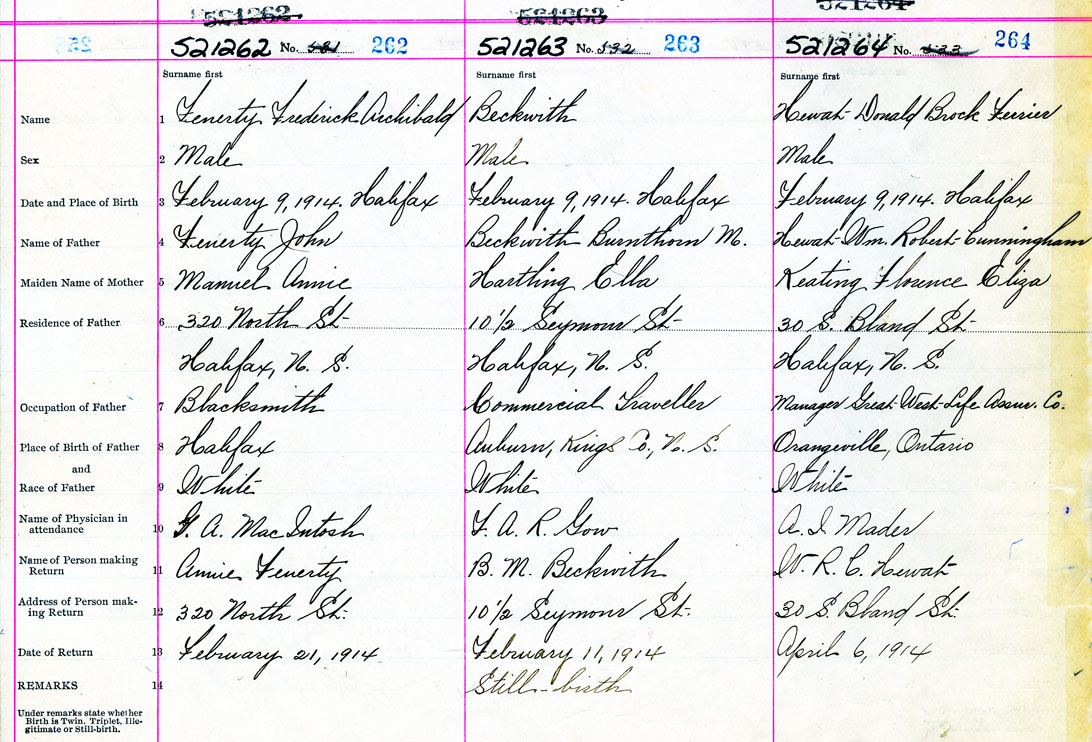 521262 521263 521264
521262 No. 531 262 521263 No. 532 263 521264 No. 533 264
Surname first Surname first Surname first
Name 1 Fenerty Frederick Archibald Beckwith Hewat Donald Brock Ferrier
Sex 2 Male Male Male
Date and Place of Birth 3 February 9, 1914. Halifax February 9, 1914. Halifax February 9, 1914. Halifax
Name of Father 4 Fenerty John Beckwith Burnthorn M. Hewat Wm. Robert Cunningham
Maiden Name of Mother 5 Manuel Annie Hartling Ella Keating Florence Eliza
Residence of Father 6 320 North St 10 1/2 Seymour St 30 S. Bland St
Halifax, N. S. Halifax, N. S. Halifax, N. S.
Occupation of Father 7 Blacksmith Commercial Traveller Manager Great West Life Assur. Co.
Place of Birth of Father 8 Halifax Auburn, Kings Co., N. S. Orangeville, Ontario
and
Race of Father 9 White White White
Name of Physician in
attendance 10 G. A. MacIntosh F. A. R. Gow A. I. Mader
Name of Person making
Return 11 Annie Fenerty B. M. Beckwith W. R. C. Hewat
Address of Person mak-
ing Return 12 320 North St. 10 1/2 Seymour St. 30 S. Bland St.
Date of Return 13 February 21, 1914 February 11, 1914 April 6, 1914
REMARKS 14 Still-birth
Under remarks state whether
Birth is Twin, Triplet, Ille-
gitimate or Still-birth.